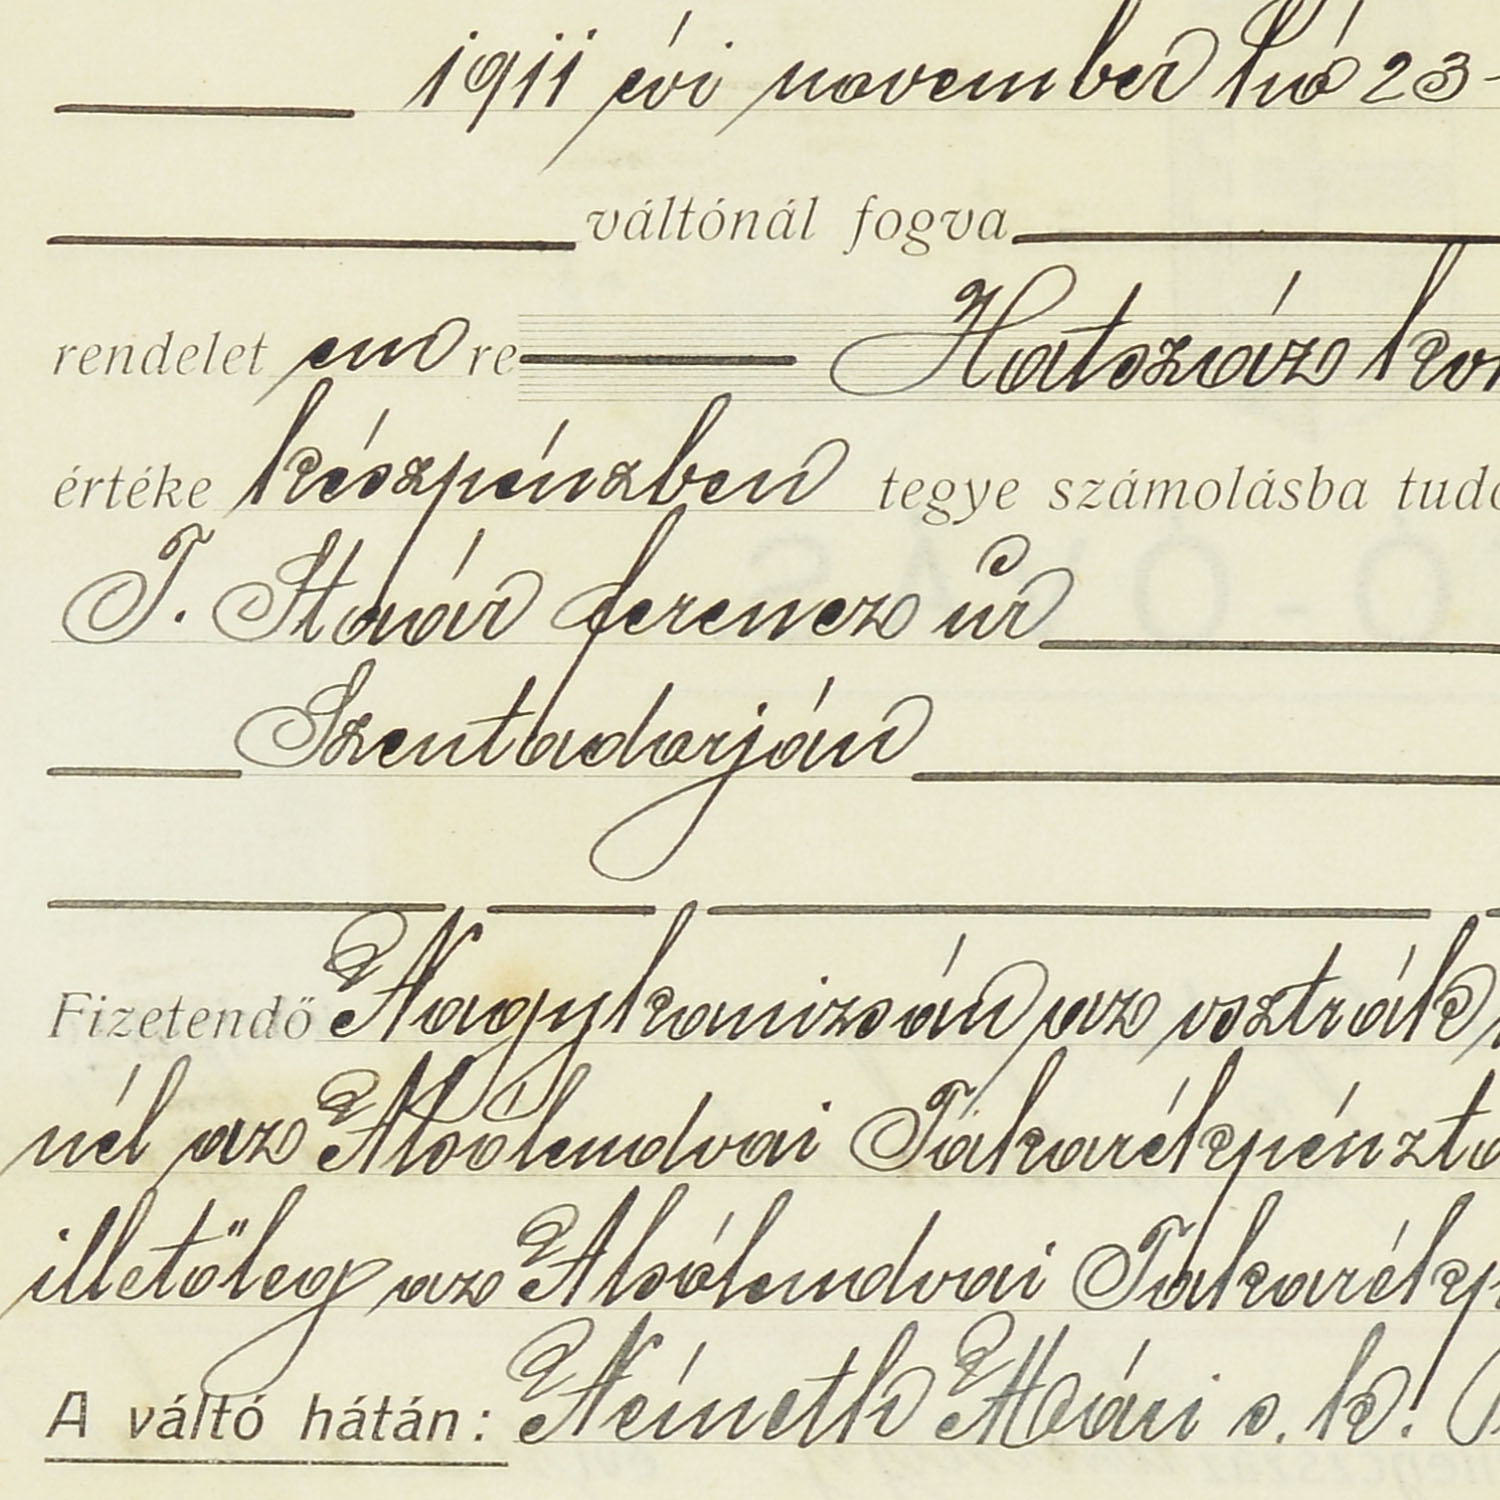 1911 évi november hó 23-
váltónál fogva
rendelet em re Hatszáz kor
értéke készpénzben tegye számolásba tudó
T. Staár Ferencz úr
Szentadorján
Fizetendő Nagykanizsán az osztrák
nél az Alsólendvai Takarékpénztá
illetőleg az Alsólendvai Takarékp
A váltó hátán: Németh Mári s. k.